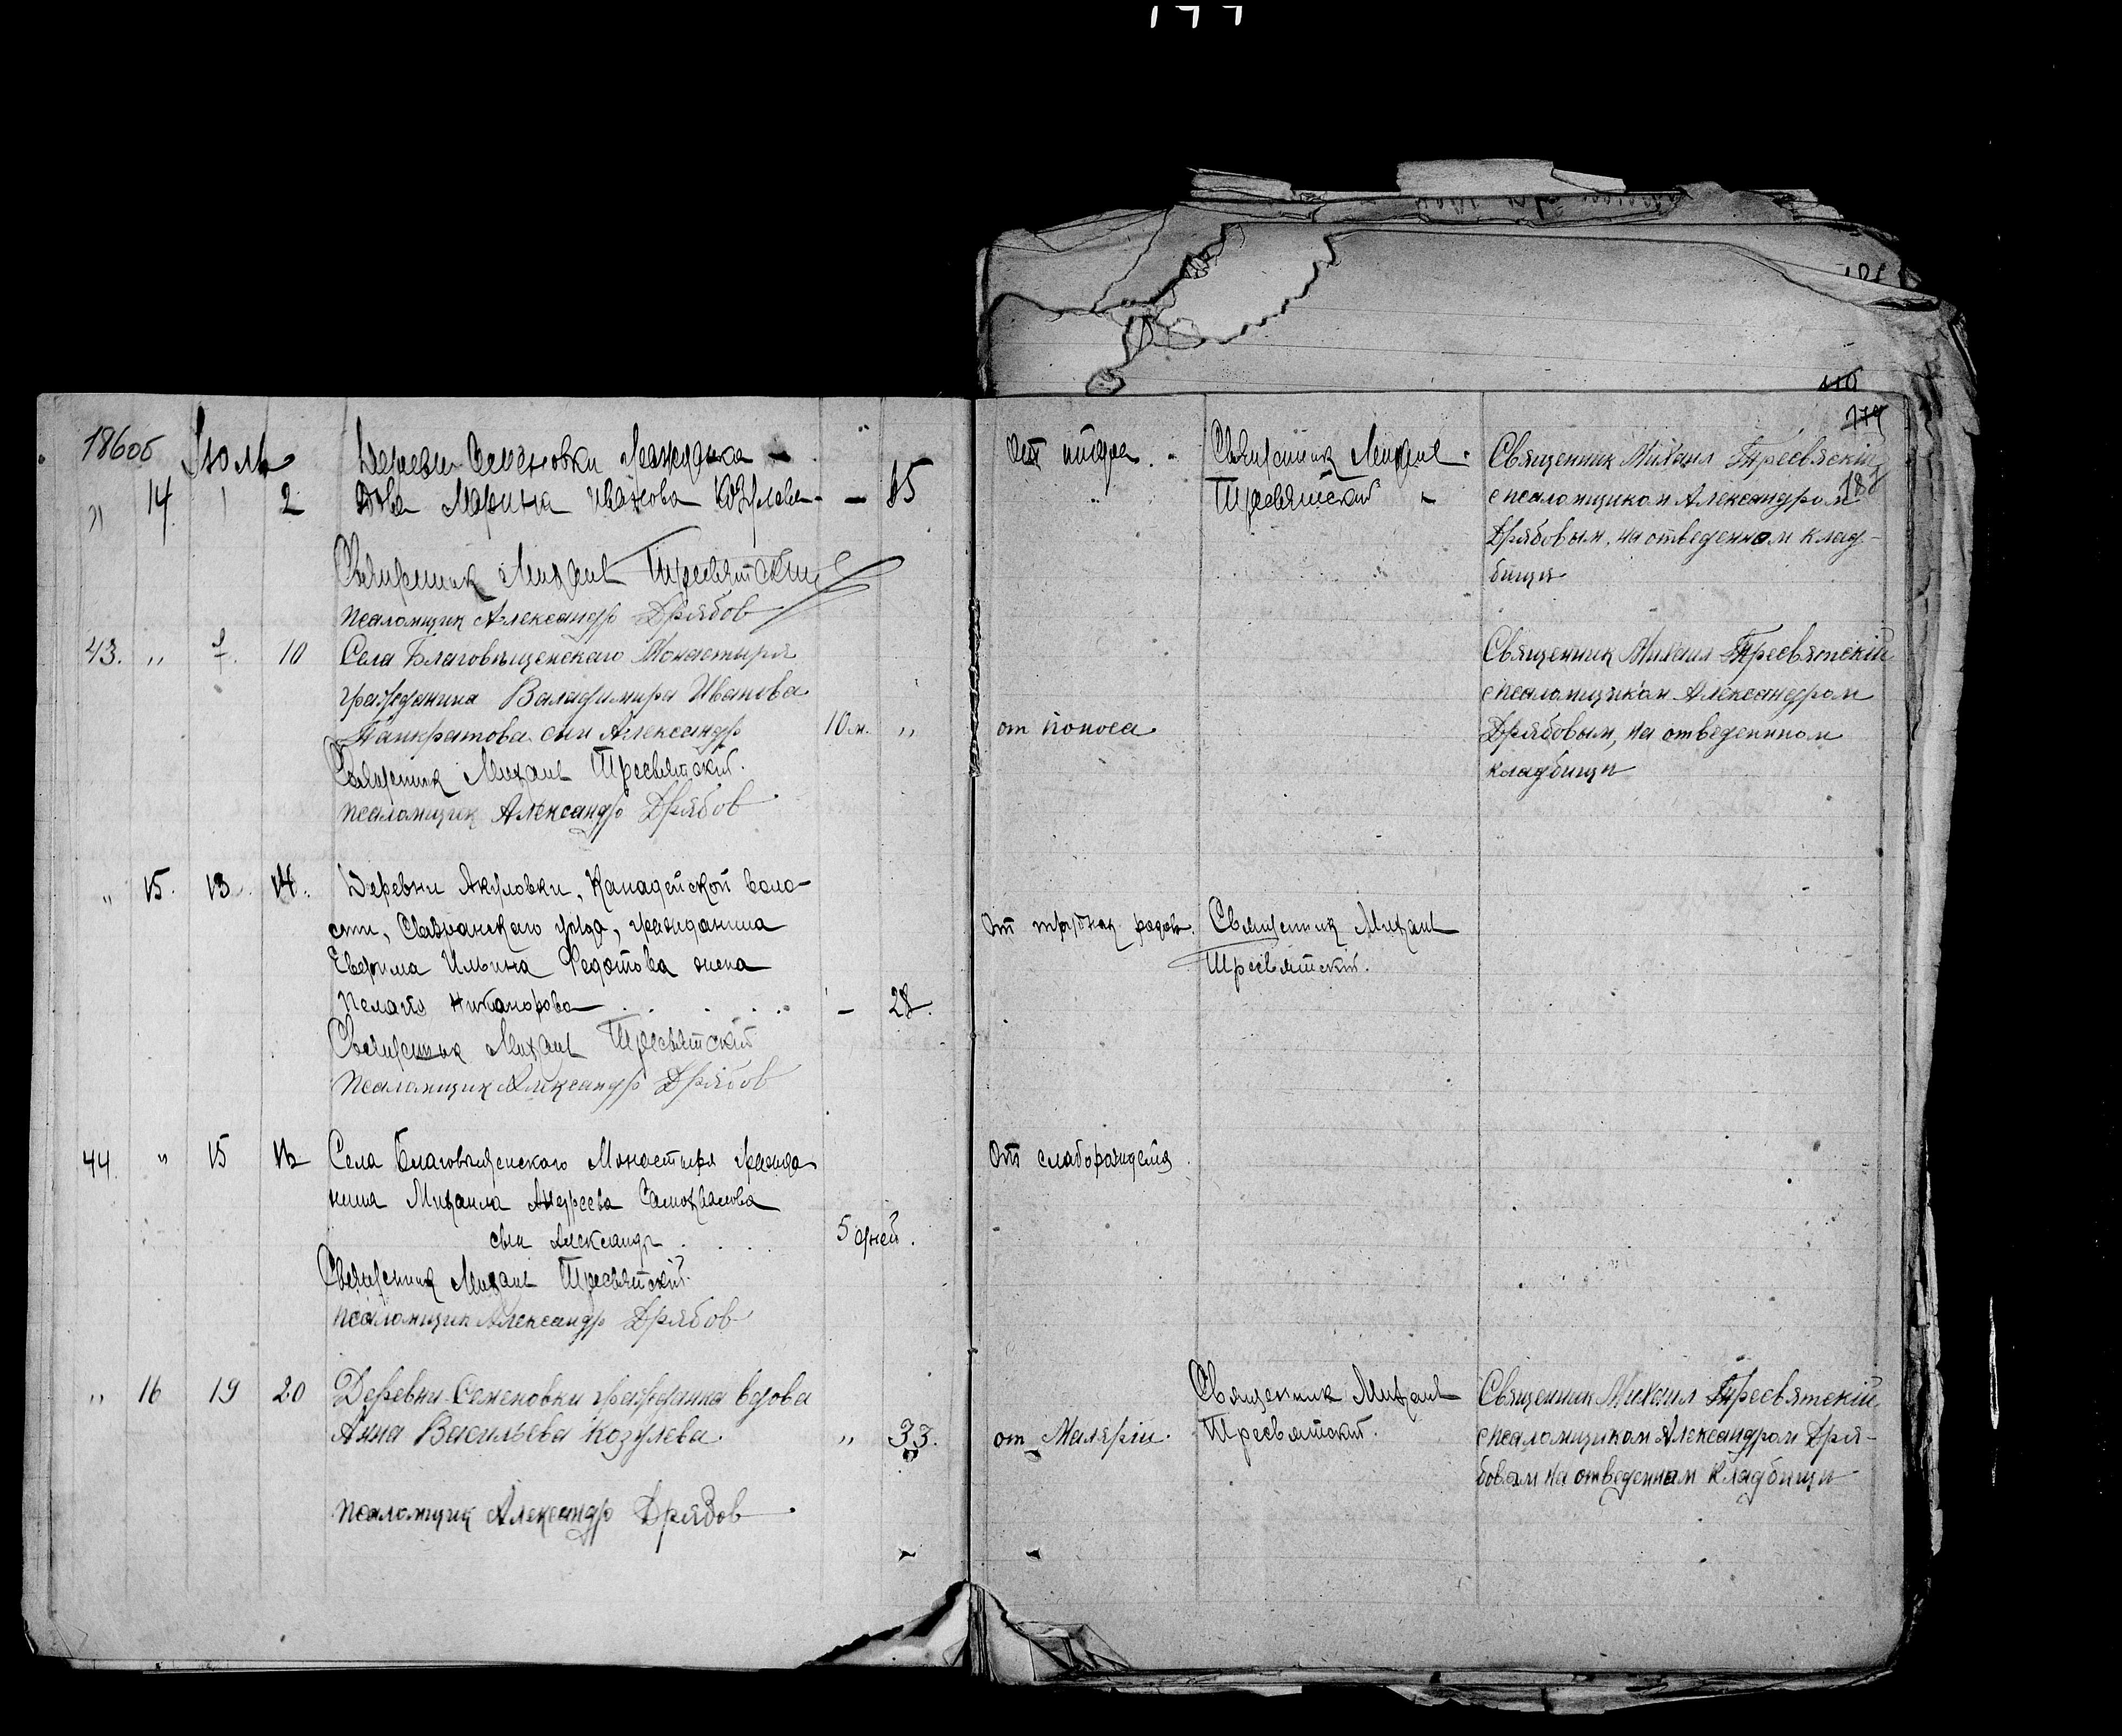 186об Июль
Деревни Семеновки гражданка
" 14 1 2 вдова Марина Иванова Козулева - 85
Священник Михаил Тресвятский
псаломщик Александр Дрябов
43. " 9. 10 Села Благовещенскаго Монастыря
гражданина Валадимира Иванова
Панкратова сын Александр 10 м. "
Священник Михаил Тресвятский.
псаломщик Александр Дрябов
" 15. 13. 14. Деревни Акуловки, Канадейской воло-
сти, Сызранскаго уезда, гражданина
Ефима Ильина Федотова жена
Пелагия Никанорова - 28.
Священник Михаил Тресвятский
Псаломщик Александр Дрябов
44. " 15 Села Благовещенскаго Монастыря гражда
нина Михаила Андреева Самохвалова
сын Александр 5 дней.
Священник Михаил Тресвятский.
псаломщик Александр Дрябов
" 16 19 20 Деревни Семеновки гражданка вдова
Анна Васильева Козулева. " 33.
псаломщик Александр Дрябов
179
180
От Священник Михаил
Тресвятский
Священник Михаил Тресвяский
с псаломщиком Александром
Дрябовым, на отведенном клад-
бищи
от поноса
Священник Михаил Тресвятский
с псаломщиком Александром
Дрябовым, на отведенном
кладбищи
От трудных родов. Священник Михаил
Тресвятский.
От слаборождения
от Малярии. Священник Михаил
Тресвятский.
Священник Михаил Тресвятский
с псаломщиком Александром Дря-
бовам на отведенном кладбищи